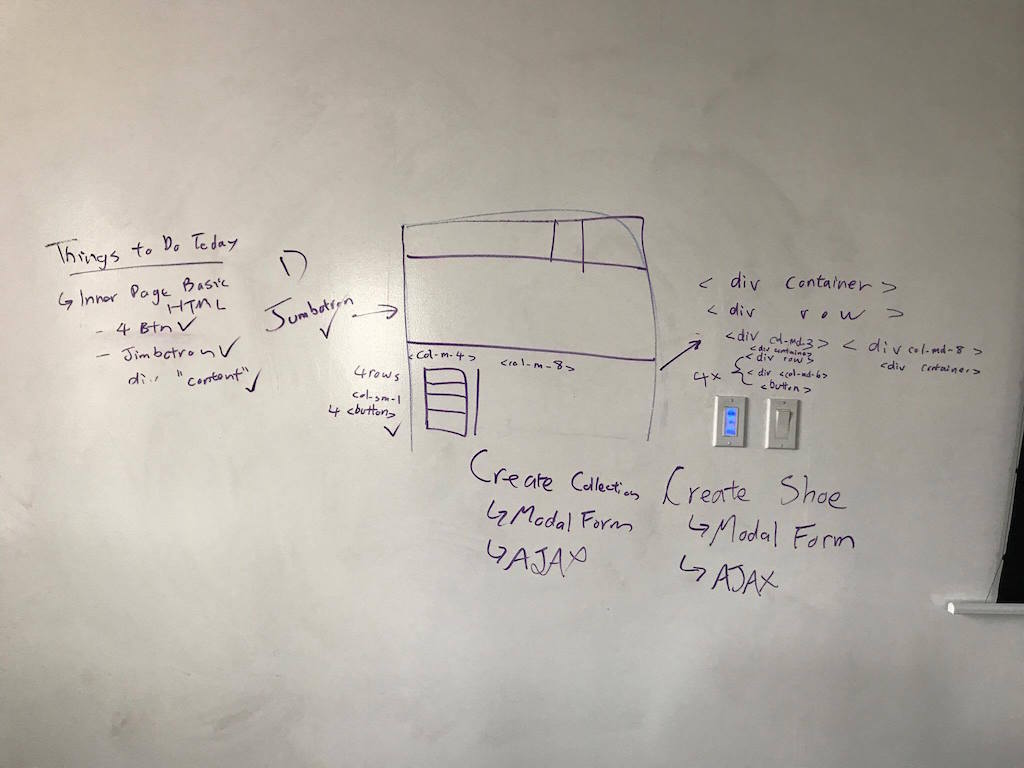 Things to Do Today
↳ Inner Page Basic
HTML
- 4 Btn ✓
- Jimbotron ✓
di.. "content" ✓
1)
Jumbotron →
✓
<col-m-4>
<col-m-8>
4 rows
col-sm-1
4 <button>
✓
< div container >
< div row >
<div col-md-3> < div col-md-8 >
<div container>
<div container>
<div rows
4x
<div <col-md-6>
<button >
Create Collection
↳ Modal Form
↳ AJAX
Create Shoe
↳ Modal Form
↳ AJAX